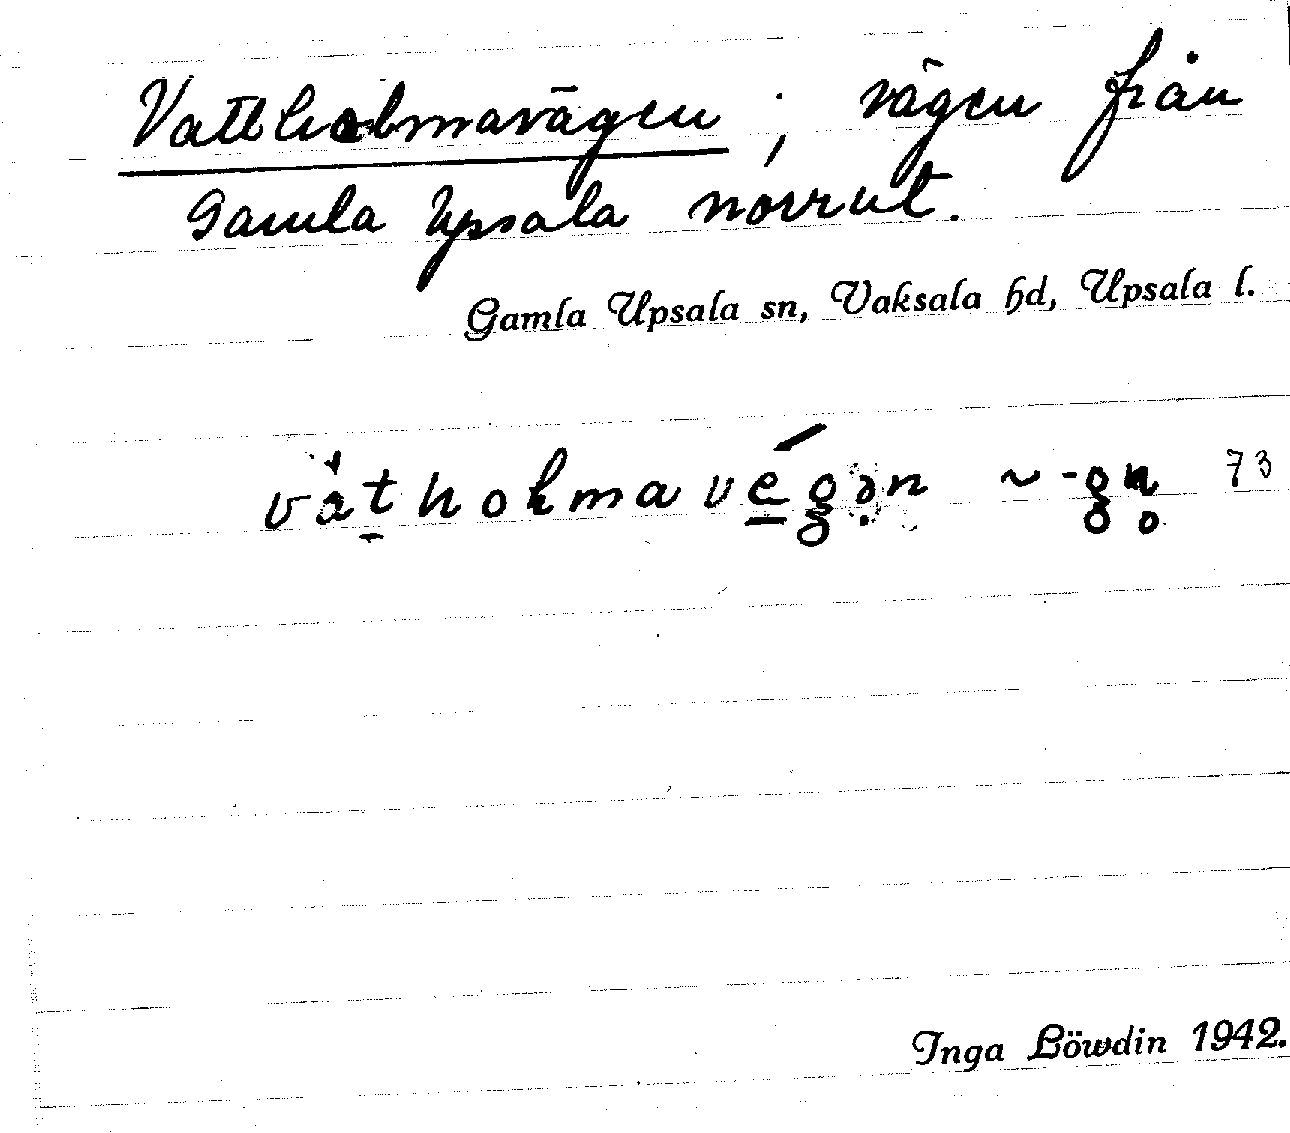 Vattholmavägen; vägen från
Gamla Upsala norrut.
Gamla Upsala sn, Vaksala hd, Upsala l.
vatholmavegən ~ -gn̥ 73
Inga Löwdin 1942.